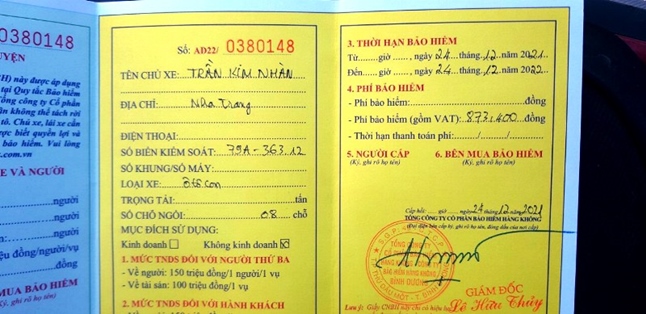 0380148
Số: AD22/ 0380148
TÊN CHỦ XE: TRẦN KIM NHÀN
ĐỊA CHỈ: Nha Trang
ĐIỆN THOẠI:
SỐ BIỂN KIỂM SOÁT: 79A - 363.12
SỐ KHUNG/SỐ MÁY:
LOẠI XE: Ôtô con
TRỌNG TẢI: tấn
SỐ CHỖ NGỒI: 08 chỗ
MỤC ĐÍCH SỬ DỤNG:
Kinh doanh ☐ Không kinh doanh ☒
1. MỨC TNDS ĐỐI VỚI NGƯỜI THỨ BA
- Về người: 150 triệu đồng/1 người/1 vụ
- Về tài sản: 100 triệu đồng/1 vụ
2. MỨC TNDS ĐỐI VỚI HÀNH KHÁCH
3. THỜI HẠN BẢO HIỂM
Từ......giờ ......, ngày 24 tháng 12 năm 2021
Đến......giờ ......, ngày 24 tháng 12 năm 2022
4. PHÍ BẢO HIỂM
- Phí bảo hiểm: đồng
- Phí bảo hiểm (gồm VAT): 873.400 đồng
- Thời hạn thanh toán phí: / /
5. NGƯỜI CẤP 6. BÊN MUA BẢO HIỂM
(Ký, ghi rõ họ tên) (Ký, ghi rõ họ tên)
Cấp hồi: giờ ngày 24/12/2021
TỔNG CÔNG TY CỔ PHẦN BẢO HIỂM HÀNG KHÔNG
GIÁM ĐỐC
Lê Hữu Thủy
UYỆN
) này được áp dụng
tại Quy tắc Bảo hiểm
Tổng công ty Cổ phần
ận không thể tách rời
tô. Chủ xe, lái xe cần
được biết quyền lợi và
bảo hiểm. Vui lòng
com.vn
E VÀ NGƯỜI
người
người
iệu đồng/người/vụ
đồng